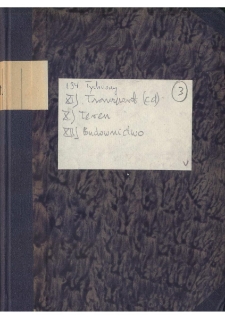 134 Tychowy
3
XI) Transport (cd).
X) Teren
XII) Budownictwo
V